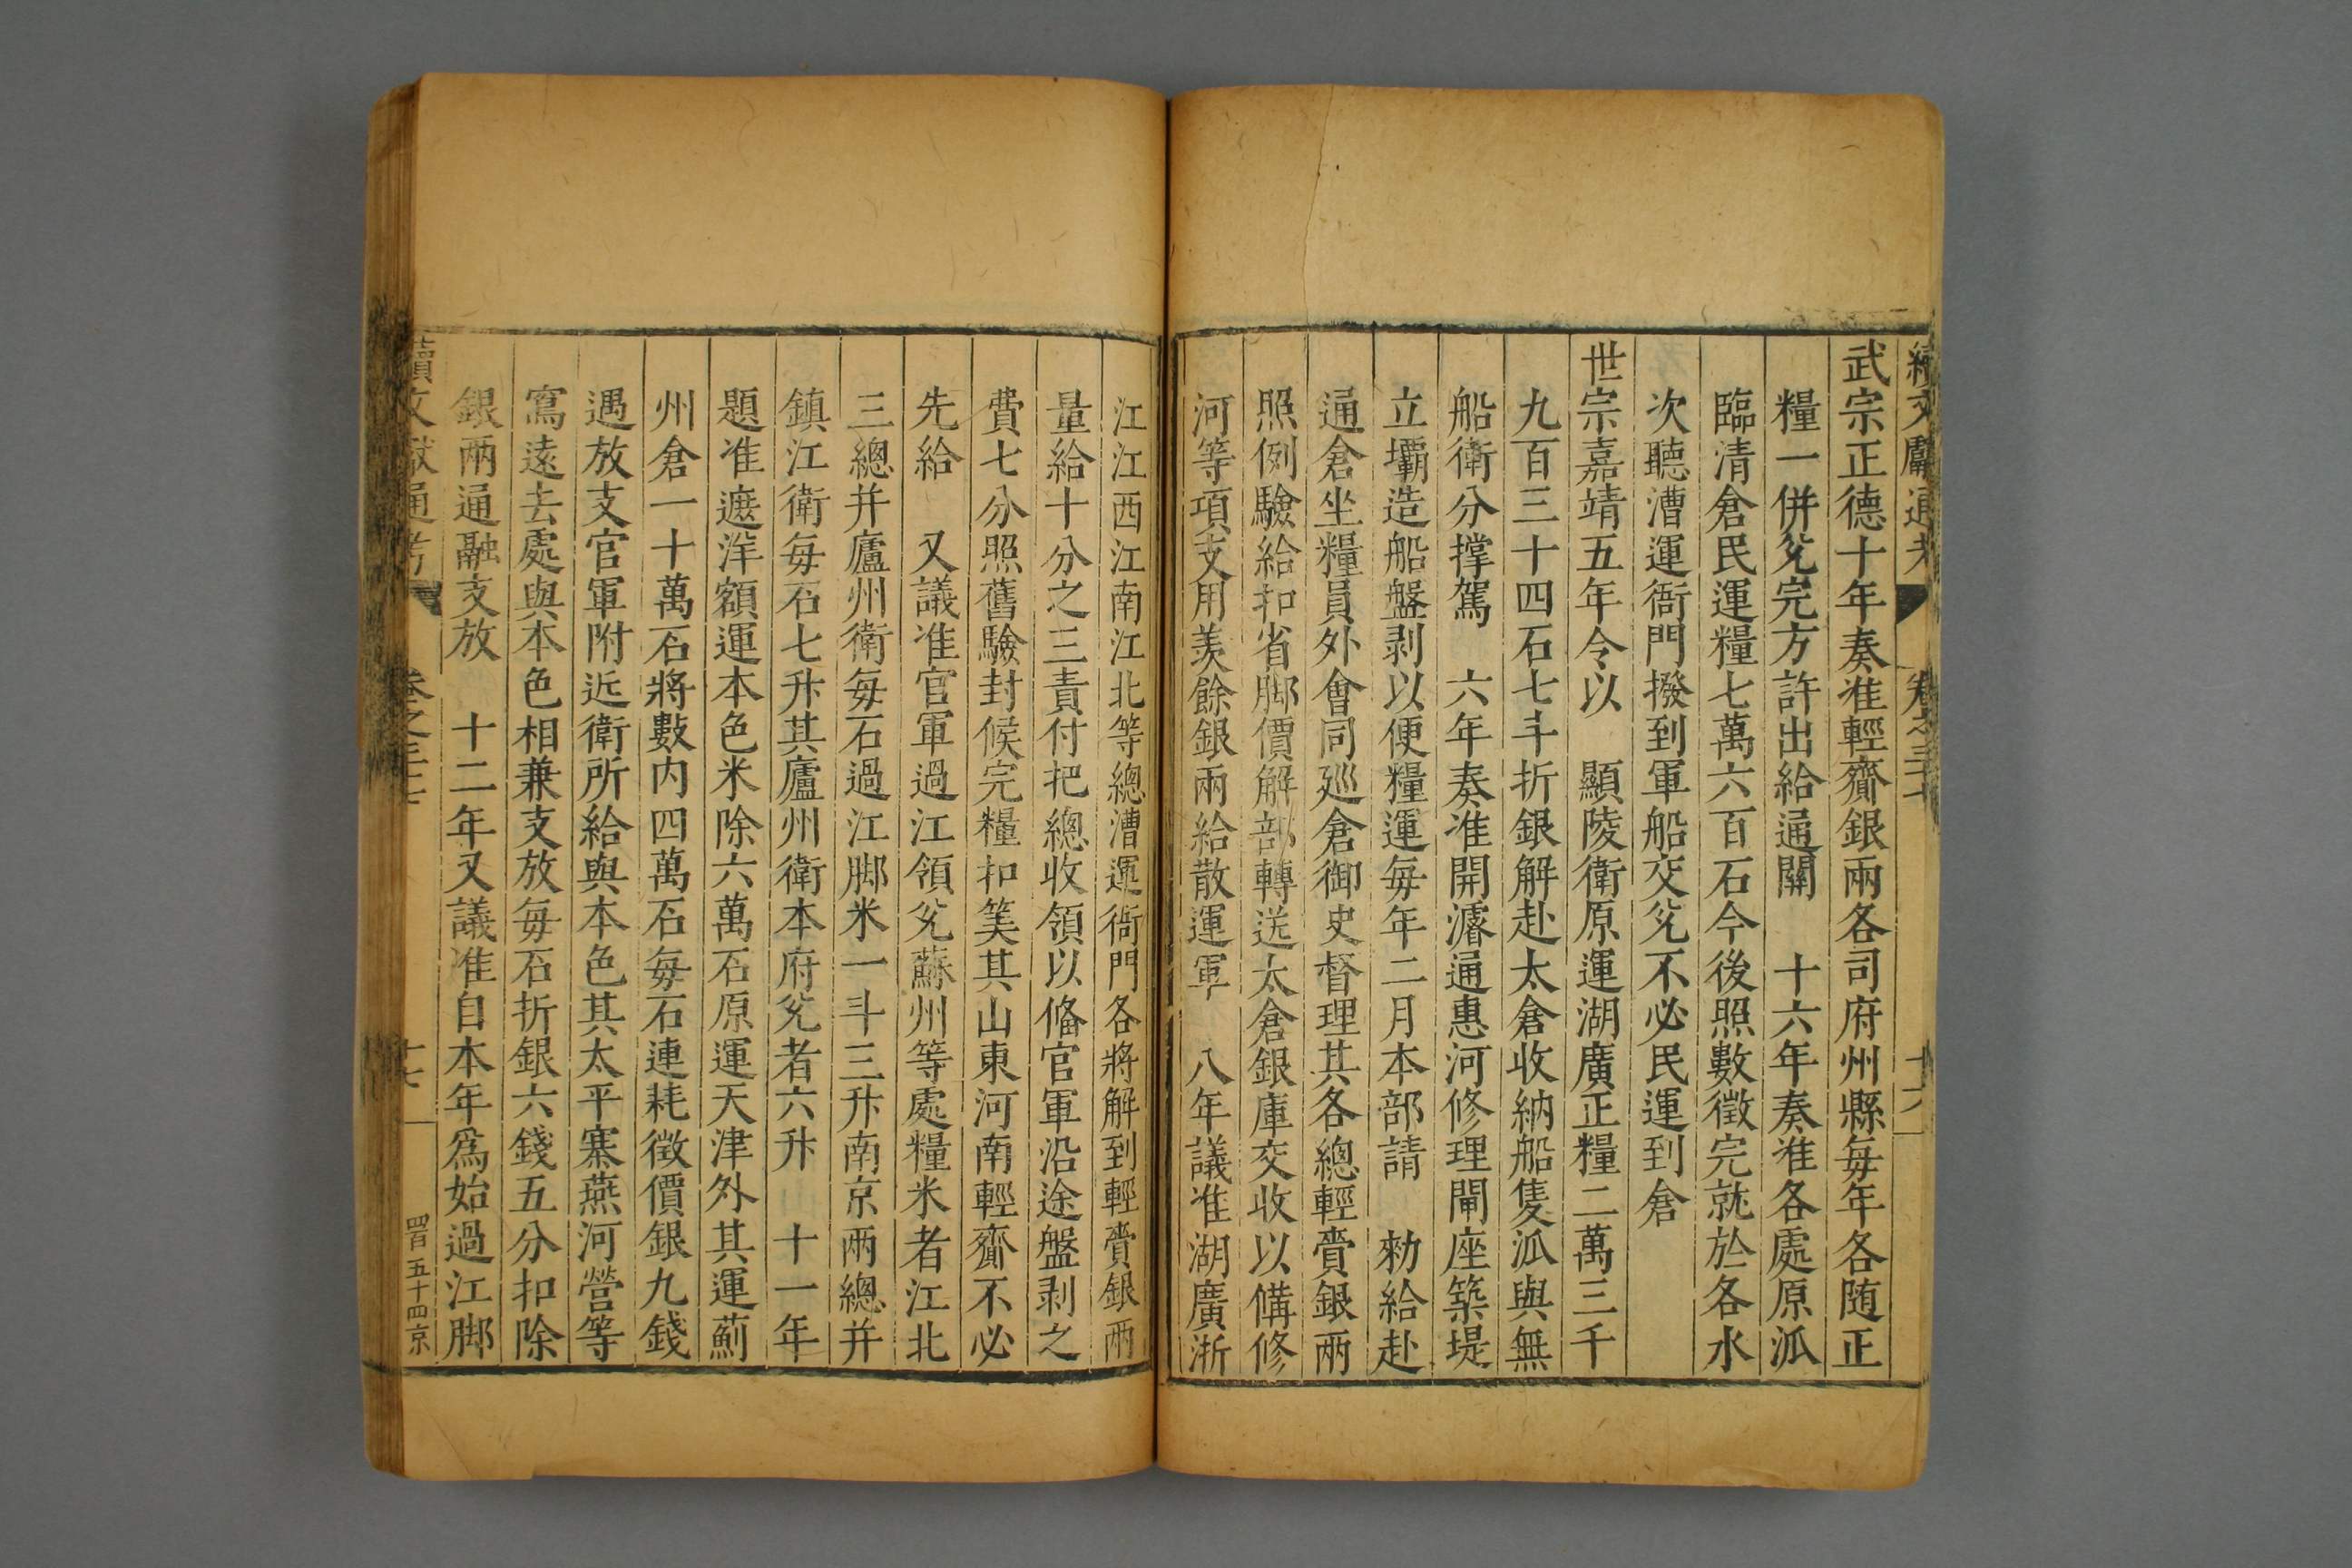 續文獻通考 卷之三十七 十六
武宗正德十年奏准輕齎銀兩各司府州縣每年各随正
糧一併兊完方許出給通關 十六年奏准各處原泒
臨清倉民運糧七萬六百石今後照數徵完就於各水
次聽漕運衙門撥到軍船交兊不必民運到倉
世宗嘉靖五年令以 顯陵衛原運湖廣正糧二萬三千
九百三十四石七斗折銀解赴太倉收納船隻泒與無
船衛分撑駕 六年奏准開濬通惠河修理閘座築堤
立壩造船盤剥以便糧運每年二月本部請 勑給赴
通倉坐糧員外會同廵倉御史督理其各總輕賫銀兩
照例驗給扣省脚價解部轉送太倉銀庫交收以備修
河等項支用羨餘銀兩給散運軍 八年議准湖廣浙
江江西江南江北等總漕運衙門各將解到輕賫銀兩
量給十分之三責付把總收領以偹官軍沿途盤剥之
費七分照舊驗封候完糧扣筭其山東河南輕齎不必
先給 又議准官軍過江領兊蘇州等處糧米者江北
三總并廬州衛每石過江脚米一斗三升南京兩總并
鎮江衛每石七升其廬州衛本府兊者六升 十一年
題准遮洋額運本色米除六萬石原運天津外其運薊
州倉一十萬石將數内四萬石每石連耗徵價銀九錢
遇放支官軍附近衛所給與本色其太平寨燕河營等
寫遠去處與本色相兼支放每石折銀六錢五分扣除
銀兩通融支放 十二年又議准自本年爲始過江脚
續文獻通考 卷之三十七 十七 四百五十四京